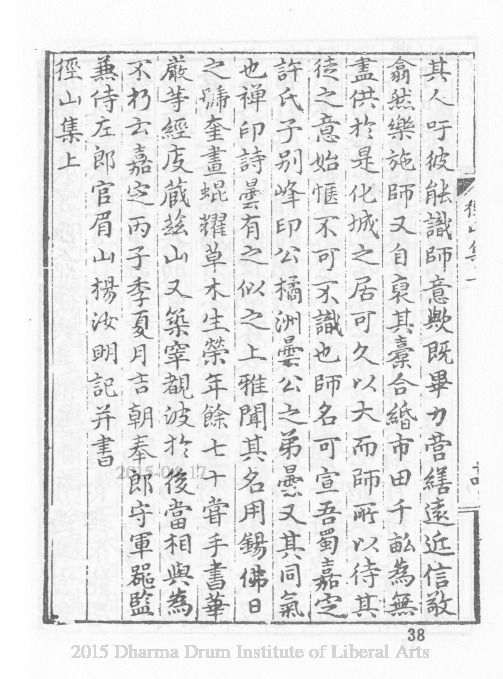 其人吁彼能識師意歟既畢力营繕遠近信敬
翕然樂施師又自裒其橐合緡市田千畝為無
盡供於是化城之居可久以大而師所以待其
徒之意始愜不可不識也師名可宣吾蜀嘉定
許氏子别峰印公橘洲曇公之弟曇又其同氣
也禅印詩曇有之似之上雅聞其名用錫佛日
之號奎畫焜耀草木生榮年餘七十嘗手書華
嚴等經庋藏茲山又築窣覩波於後當相與為
不朽云嘉定丙子季夏月吉朝奉郎守軍器監
兼侍左郎官眉山楊汝明記并書
徑山集上
徑山集上
十四
2015-04-17
38
2015 Dharma Drum Institute of Liberal Arts